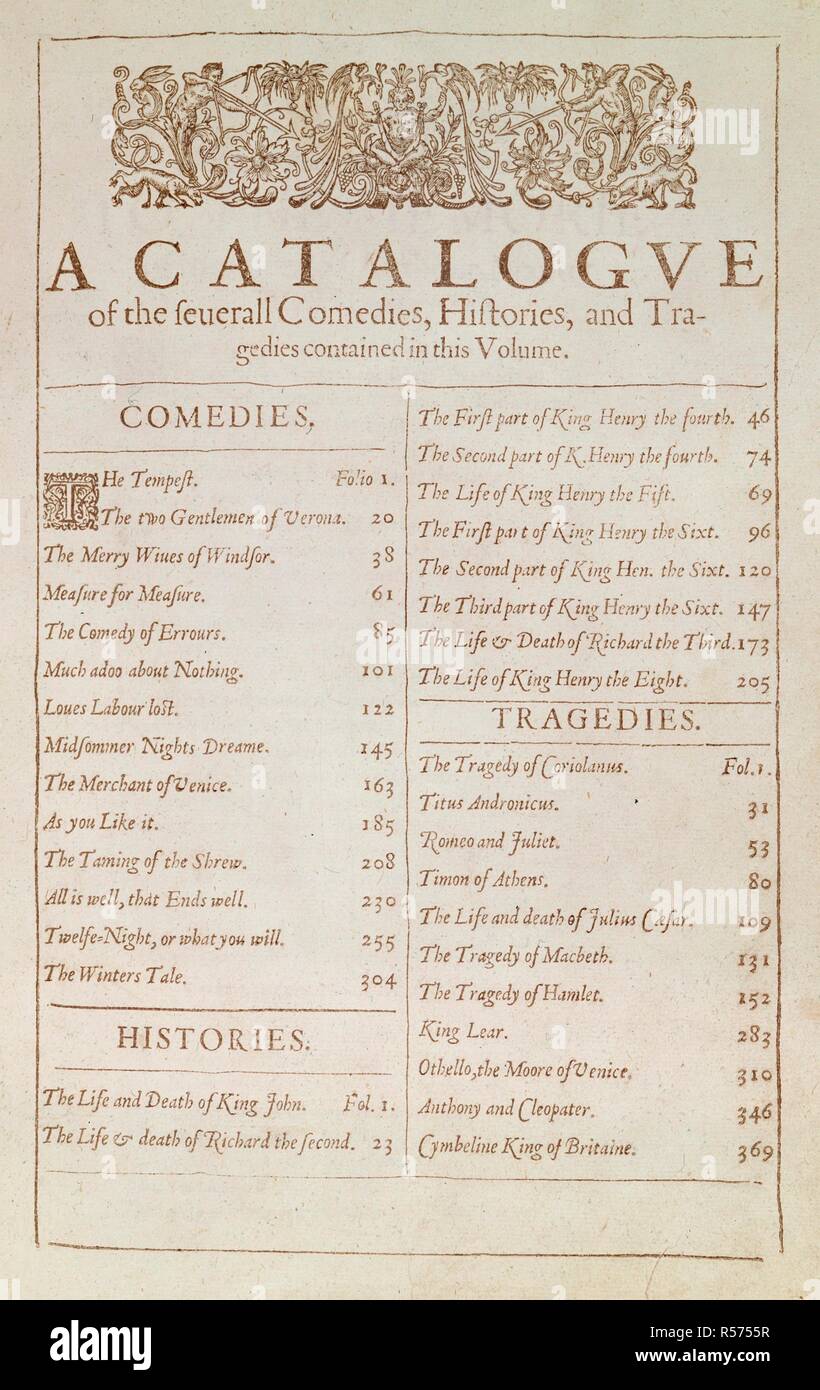 A CATALOGVE
of the ſeuerall Comedies, Hiſtories, and Tra-
gedies contained in this Volume.
COMEDIES.
THe Tempeſt. Folio 1.
The two Gentlemen of Verona. 20
The Merry Wiues of Windſor. 38
Meaſure for Meaſure. 61
The Comedy of Errours. 85
Much adoo about Nothing. 101
Loues Labour loſt. 122
Midſommer Nights Dreame. 145
The Merchant of Venice. 163
As you Like it. 185
The Taming of the Shrew. 208
All is well, that Ends well. 230
Twelfe-Night, or what you will. 255
The Winters Tale. 304
HISTORIES.
The Life and Death of King John. Fol. 1.
The Life & death of Richard the ſecond. 23
The Firſt part of King Henry the fourth. 46
The Second part of K. Henry the fourth. 74
The Life of King Henry the Fift. 69
The Firſt part of King Henry the Sixt. 96
The Second part of King Hen. the Sixt. 120
The Third part of King Henry the Sixt. 147
The Life & Death of Richard the Third. 173
The Life of King Henry the Eight. 205
TRAGEDIES.
The Tragedy of Coriolanus. Fol. 1.
Titus Andronicus. 31
Romeo and Juliet. 53
Timon of Athens. 80
The Life and death of Julius Cæſar. 109
The Tragedy of Macbeth. 131
The Tragedy of Hamlet. 152
King Lear. 283
Othello, the Moore of Venice. 310
Anthony and Cleopater. 346
Cymbeline King of Britaine. 369
alamy
alamy
Image ID: R5755R
www.alamy.com